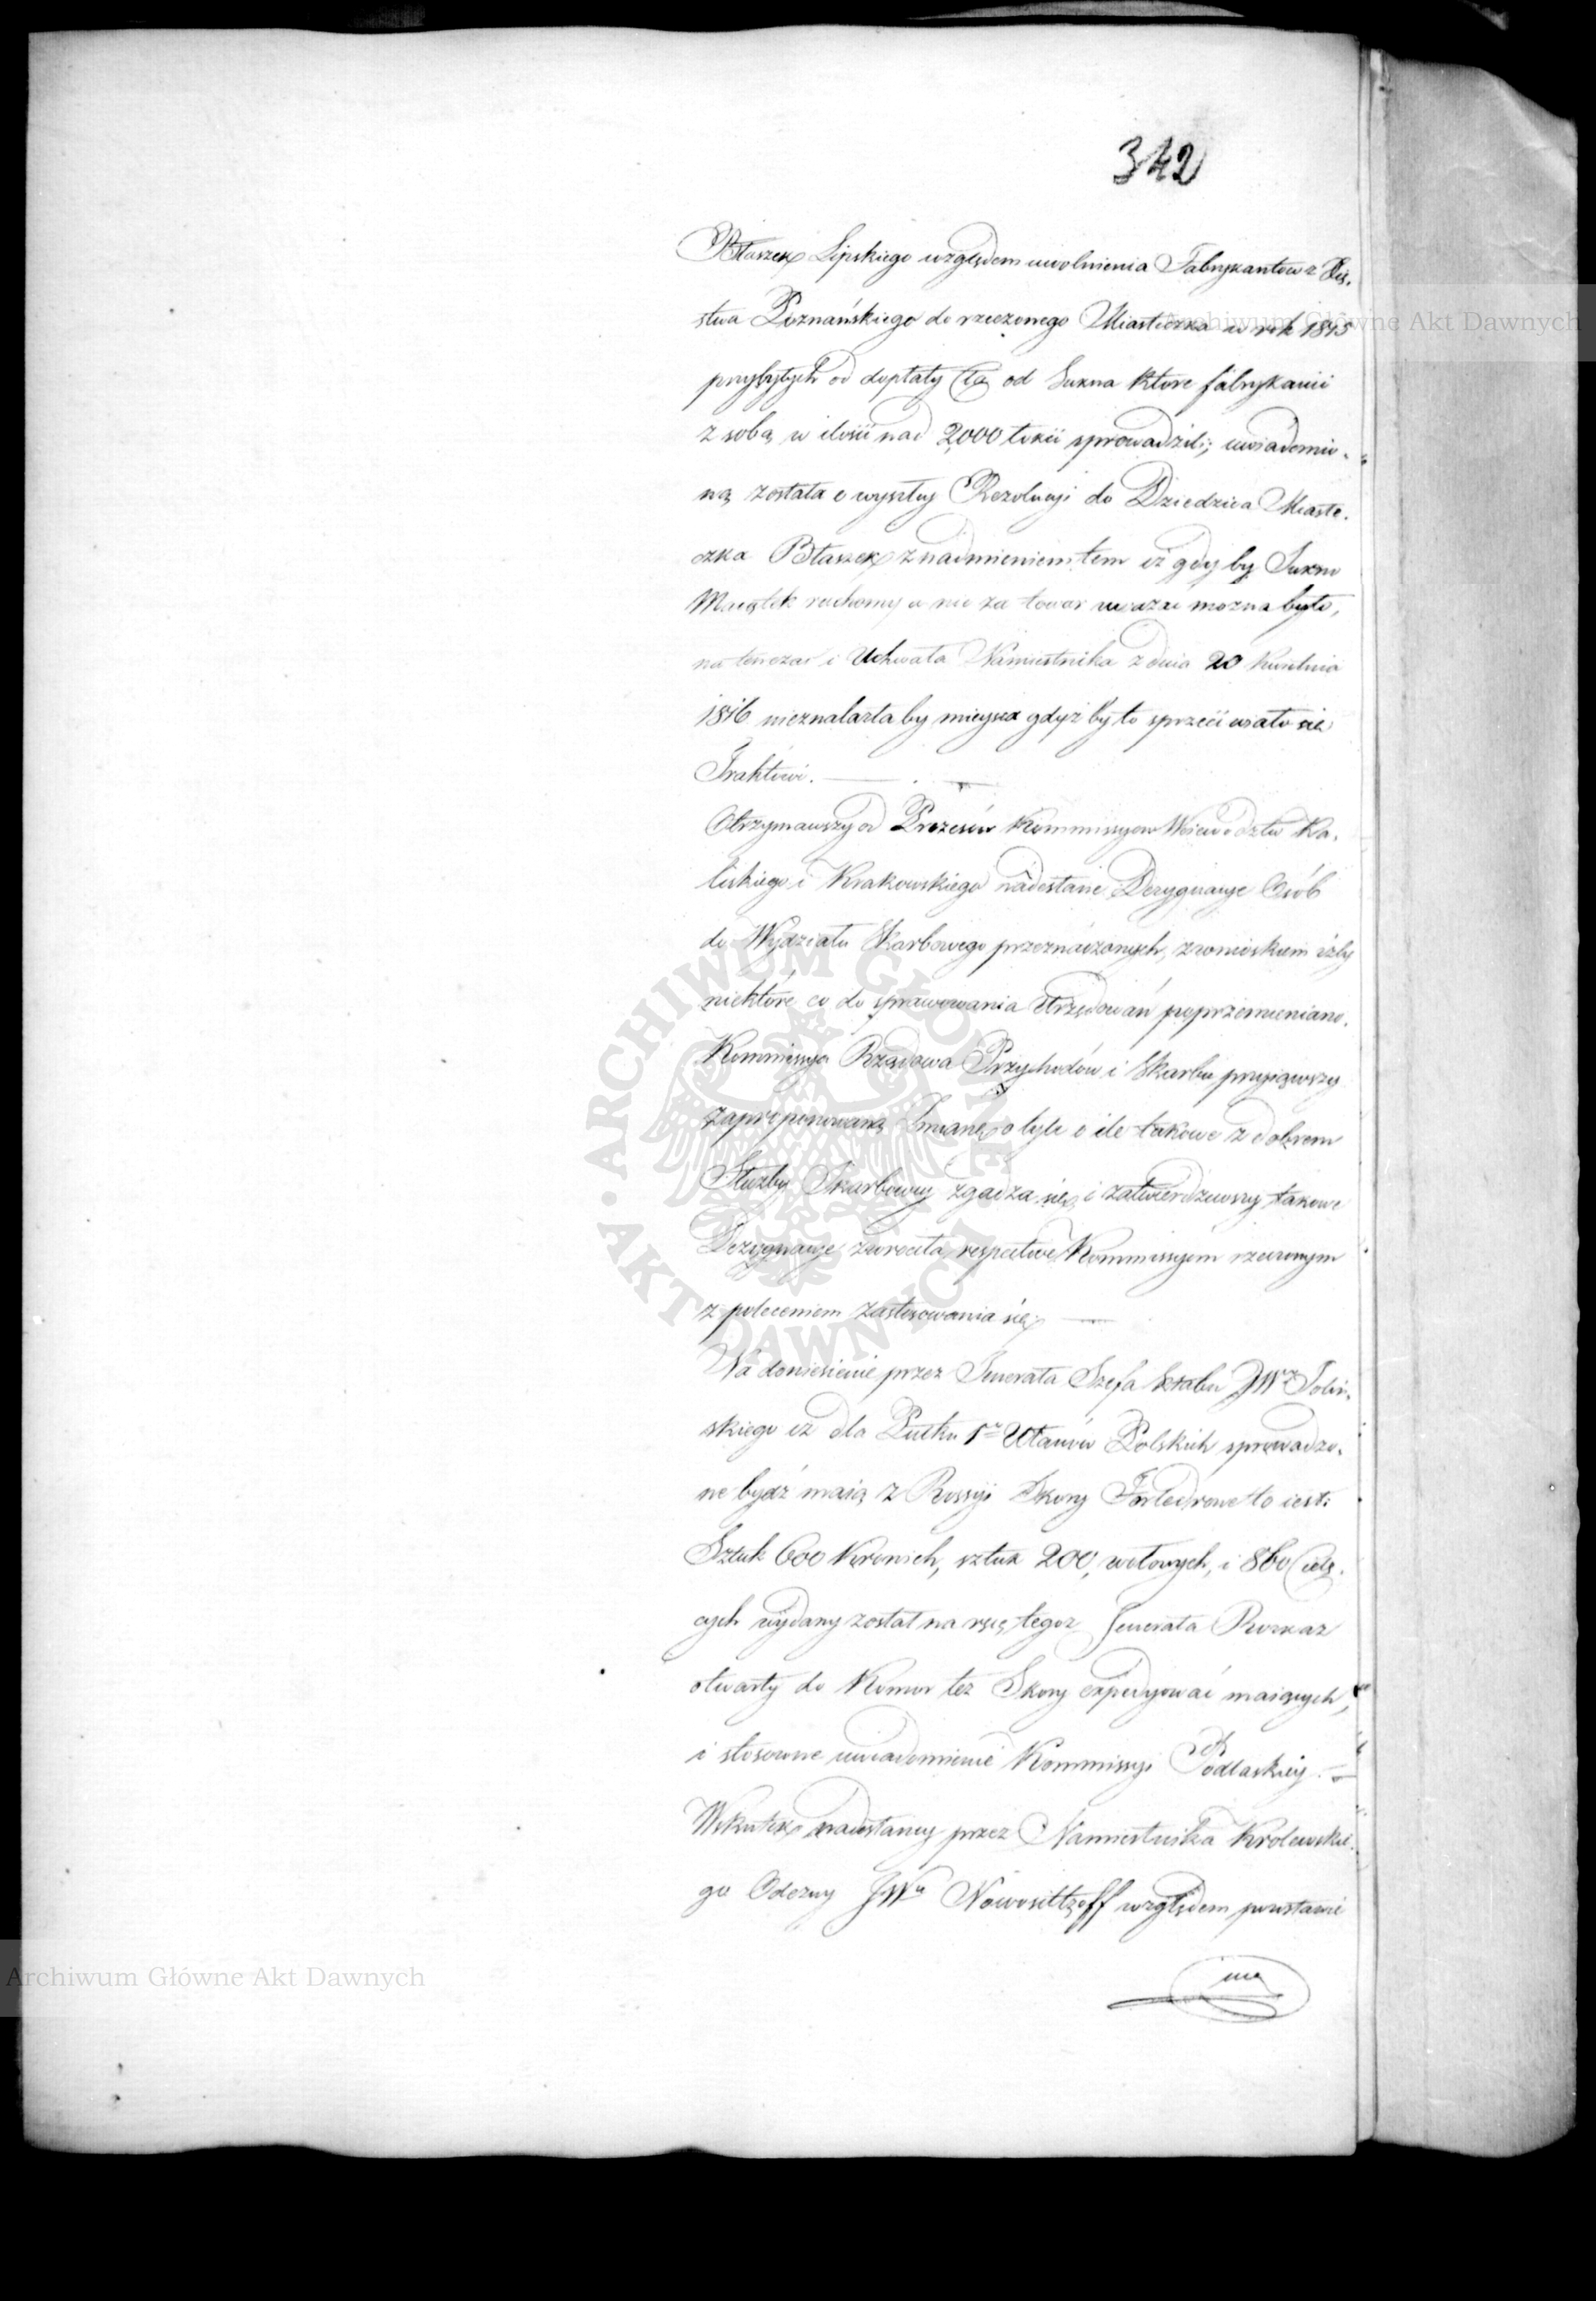 342
Błaszek Lipskiego względem uwolnienia Fabrykantów z Xię.
stwa Poznańskiego do rzeczonego Miasteczka w rok 1815
przybyłych od dopłaty Cła od Sukna które fabrykanci
z sobą w ilości nad 2,000 łokci sprowadzili; uwiadomio.
ną została o wyszłey Rezolucyi do Dziedzica Miaste.
czka Błaszek z nadmienieniem tem iż gdy by Sukno
Maiątek ruchomy a nie za towar uważać można było,
na tenczas i Uchwała Namiestnika z dnia 20 Kwietnia
1816 nieznalazła by mieysca gdyż by to sprzeciwiało się
Traktowi.
Otrzymawszy od Prezesów Kommissyów Woiewództw Ka.
liskiego i Krakowskiego nadesłane Dezygnacye Osób
do Wydziału Skarbowego przeznaczonych, z wnioskiem iżby
niektóre co do sprawowania Urzędowań poprzemieniano.
Kommissya Rządowa Przychodów i Skarbu przyiąwszy
zaproponowaną Zmianę o tyle o ile takowe z dobrem
Służby Skarbowey zgadza się, i zatwierdziwszy takowe
Dezygnacye zwróciła respective Kommissyom rzeczonym
z poleceniem zastosowania się.
Na doniesienie przez Generała Szefa Sztabu JWo Toliń.
skiego iż dla Pułku 1o Ułanów Polskich sprowadzo.
ne bydź maią z Rossyi Skory to iest:
Sztuk 600 Kronich, sztuk 200, wołowych, i 860 Cielę.
cych wydany został na ręcę tegoż Generała Rozkaz
otwarty do Komor też Skory expedyować maiących,
i stosowne uwiadomienie Kommissyi Podlaskiey.
Wskutek nadesłaney przez Namiestnika Królewskie.
go Odezwy JWo Nowosiltzoff względem powstanie
Archiwum Główne Akt Dawnych
Archiwum Główne Akt Dawnych
ARCHIWUM GŁÓWNE AKT DAWNYCH